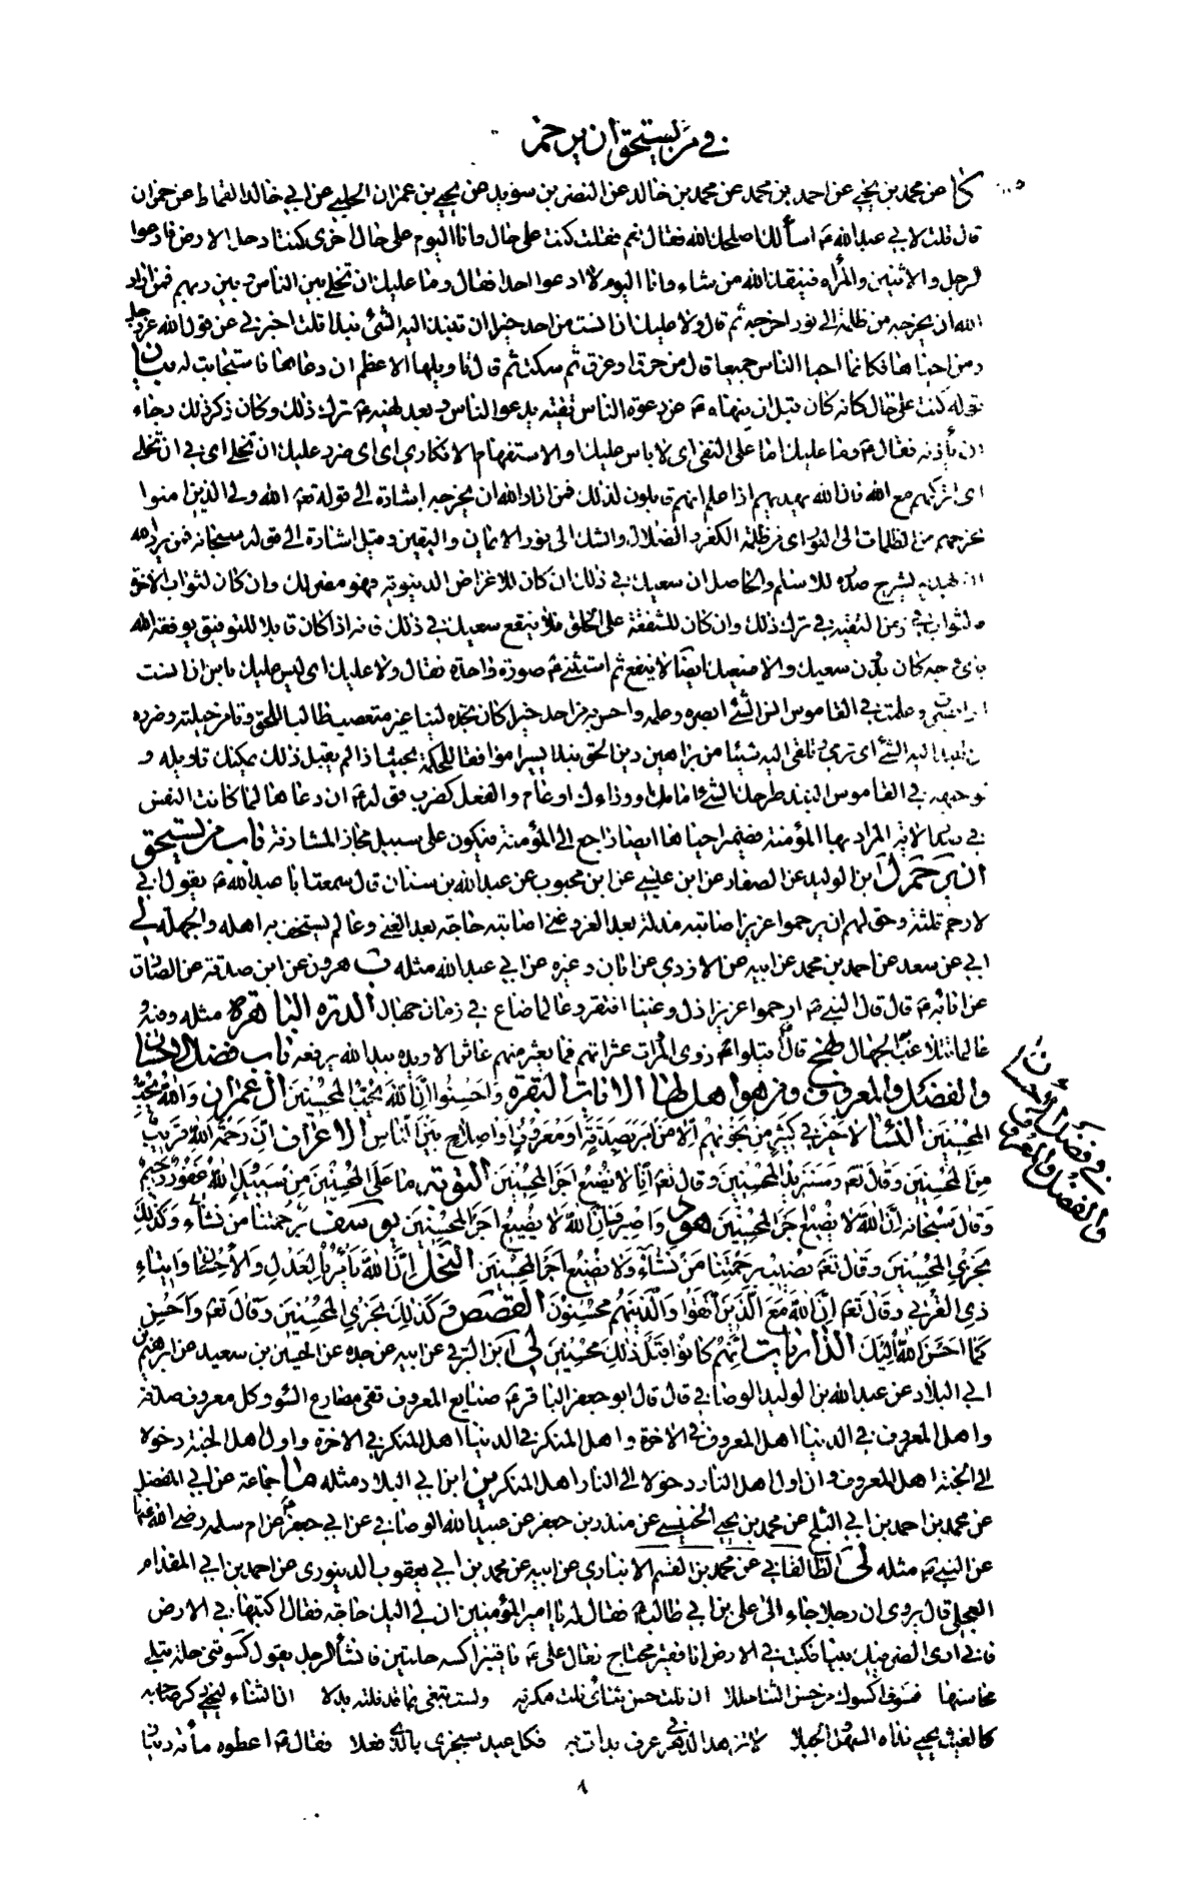 في من يستحق ان يرحم
كا عن محمد بن يحيى عن احمد بن محمد عن محمد بن خالد عن النضر بن سويد عن يحيى بن عمران الحلبي عن ابي خالد القماط عن حمران
قال قلت لابي عبد الله ع اسألك اصلحك الله فقال نعم فقلت كنت على حال وانا اليوم على حال اخرى كنت ادخل الارض فادعوا
الرجل والاثنين والمرأة فينقذ الله من شاء وانا اليوم لا ادعوا احدا فقال وما عليك ان تخلي بين الناس وبين ربهم فمن اراد
الله ان يخرجه من ظلمة الى نور اخرجه ثم قال ولا عليك ان انست من احد خيرا ان تنبذ اليه الشئ نبذا قلت اخبرني عن قول الله عز وجل
ومن احياها فكانما احيا الناس جميعا قال من حرق او غرق ثم سكت ثم قال تاويلها الاعظم ان دعاها فاستجابت له بيان
قوله كنت على حال كانه كان قبل ان ينهاه ع عن دعوة الناس تقية يدعو الناس وبعد نهيه ع ترك ذلك وكان ذكر ذلك رجاء
ان يأذنه فقال ع وما عليك اما على النفي اى لا باس عليك او الاستفهام الانكاري اى اى ضرر عليك ان تخلي اى في ان تخلي
اى اتركهم مع الله فان الله يهديهم اذا علم انهم قابلون لذلك فمن اراد الله ان يخرجه اشارة الى قوله تعم الله ولي الذين امنوا
يخرجهم من الظلمات الى النور اى من ظلمة الكفر والضلال والشك الى نور الايمان واليقين وقيل اشارة الى قوله سبحانه فمن يرد الله
ان يهديه يشرح صدره للاسلم والحاصل ان سعيك في ذلك ان كان للاغراض الدنيوية فهو مضر لك وان كان لثواب الاخرة
فالثواب في زمن التقية في ترك ذلك وان كان للشفقة على الخلق فلا ينفع سعيك في ذلك فانه اذا كان قابلا للتوفيق يوفقه الله
باى وجه كان بدون سعيك والا فسعيك ايضا لا ينفع ثم استثنى ع صورة واحدة فقال ولا عليك اى ليس عليك باس ان انست
اى ابصرت وعلمت في القاموس انس الشئ ابصره وعلمه واحس به من احد خيرا كان تجده لينا غير متعصب طالبا للحق وتامن حيلته وضرره
ان تنبذ اليه الشئ اى ترمي وتلقي اليه شيئا من براهين دين الحق نبذا يسيرا موافقا للحكمة بحيث اذا لم يقبل ذلك يمكنك تاويله و
توجيهه في القاموس النبذ طرحك الشئ امامك او وراءك او عام والفعل كضرب قوله ع ان دعاها لما كانت النفس
في صدر الاية المراد بها المؤمنة فضمير احياها ايضا راجع الى المؤمنة فيكون على سبيل مجاز المشارفة باب من يستحق
ان يرحم ل ابن الوليد عن الصفار عن ابن عيسى عن ابن محبوب عن عبد الله بن سنان قال سمعت ابا عبد الله ع يقول اني
لارحم ثلثة وحق لهم ان يرحموا عزيز اصابته مذلة بعد العز وغني اصابته حاجة بعد الغنى وعالم يستخف به اهله والجهلة لى
ابي عن سعد عن احمد بن محمد عن ابيه عن الازدي عن ابان وغيره عن ابي عبد الله مثله ب هرون عن ابن صدقة عن الصادق
عن ابائه ع قال قال النبي ص ارحموا عزيزا ذل وغنيا افتقر وعالما ضاع في زمان جهال الدرة الباهرة مثله وفيه
عالما تتلاعب به الجهال نهج قال ع اقيلوا ذوي المروات عثراتهم فما يعثر منهم عاثر الا ويده بيد الله يرفعه باب فضل الاحسان
والفضل والمعروف ومن هو اهل لها الايات البقرة واحسنوا ان الله يحب المحسنين ال عمران والله يحب
المحسنين النساء لا خير في كثير من نجويهم الا من امر بصدقة او معروف او اصلاح بين الناس الاعراف ان رحمة الله قريب
من المحسنين وقال تعم وسنزيد المحسنين وقال تعم انا لا نضيع اجر المحسنين التوبة ما على المحسنين من سبيل والله غفور رحيم
وقال سبحانه ان الله لا يضيع اجر المحسنين هود واصبر فان الله لا يضيع اجر المحسنين يوسف برحمتنا من نشاء وكذلك
نجزي المحسنين وقال تعم نصيب برحمتنا من نشاء ولا نضيع اجر المحسنين النحل ان الله يامر بالعدل والاحسان وايتاء
ذي القربى وقال تعم ان الله مع الذين اتقوا والذين هم محسنون القصص وكذلك نجزي المحسنين وقال تعم واحسن
كما احسن الله اليك الذاريات انهم كانوا قبل ذلك محسنين لى ابن البرقي عن ابيه عن جده عن الحسين بن سعيد عن ابراهيم بن
ابي البلاد عن عبد الله بن الوليد الوصافي قال قال ابو جعفر الباقر ع صنايع المعروف تقي مصارع السوء وكل معروف صدقة
واهل المعروف في الدنيا اهل المعروف في الاخرة واهل المنكر في الدنيا اهل المنكر في الاخرة واول اهل الجنة دخولا
الى الجنة اهل المعروف وان اول اهل النار دخولا الى النار اهل المنكر ين ابن ابي البلاد مثله ما جماعة عن ابي المفضل
عن محمد بن احمد بن ابي الثلج عن محمد بن يحيى الخنيسي عن منذر بن جعفر عن عبيد الله الوصافي عن ابي جعفر ع عن ام سلمه رضي الله عنها
عن النبي ص مثله لى الطالقاني عن محمد بن القسم الانباري عن ابيه عن محمد بن ابي يعقوب الدينوري عن احمد بن ابي المقدام
العجلي قال يروى ان رجلا جاء الى علي بن ابي طالب ع فقال له يا امير المؤمنين ان لي اليك حاجة فقال اكتبها في الارض
فاني ارى الضر فيك بينا فكتب في الارض انا فقير محتاج فقال علي ع يا قنبر اكسه حلتين فانشأ الرجل يقول كسوتني حلة تبلى
محاسنها فسوف اكسوك من حسن الثنا حللا ان نلت حسن ثنائي نلت مكرمة ولست تبغي بما قد نلته بدلا ان الثناء ليحيي ذكر صاحبه
كالغيث يحيي نداه السهل والجبلا لا تزهد الدهر في عرف بدات به فكل عبد سيجزى بالذي فعلا فقال ع اعطوه مأة دينار
في فضل الاحسان
والفضل والمعروف
٨